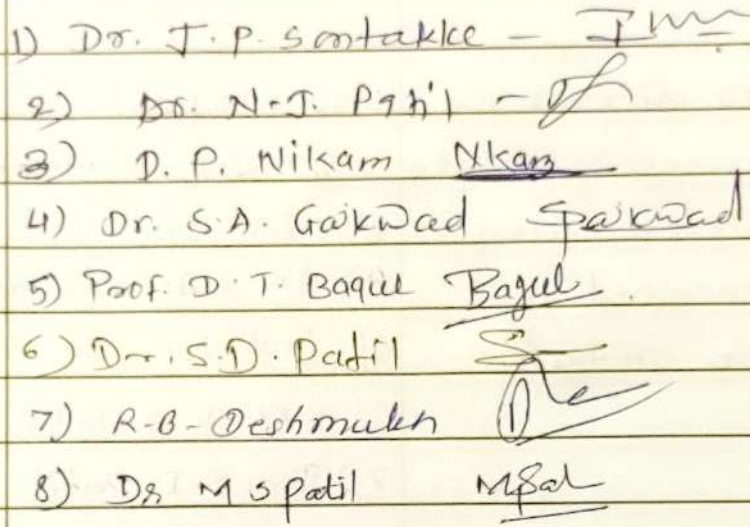 1) Dr. J. P. Sontakke -
2) Dr. N. J. Patil -
3) D. P. Nikam Nkam
4) Dr. S. A. Gaikwad Spaikwad
5) Prof. D. T. Bagul Bagul
6) Dr. S. D. Patil
7) R-B-Deshmukh
8) Dr M S Patil